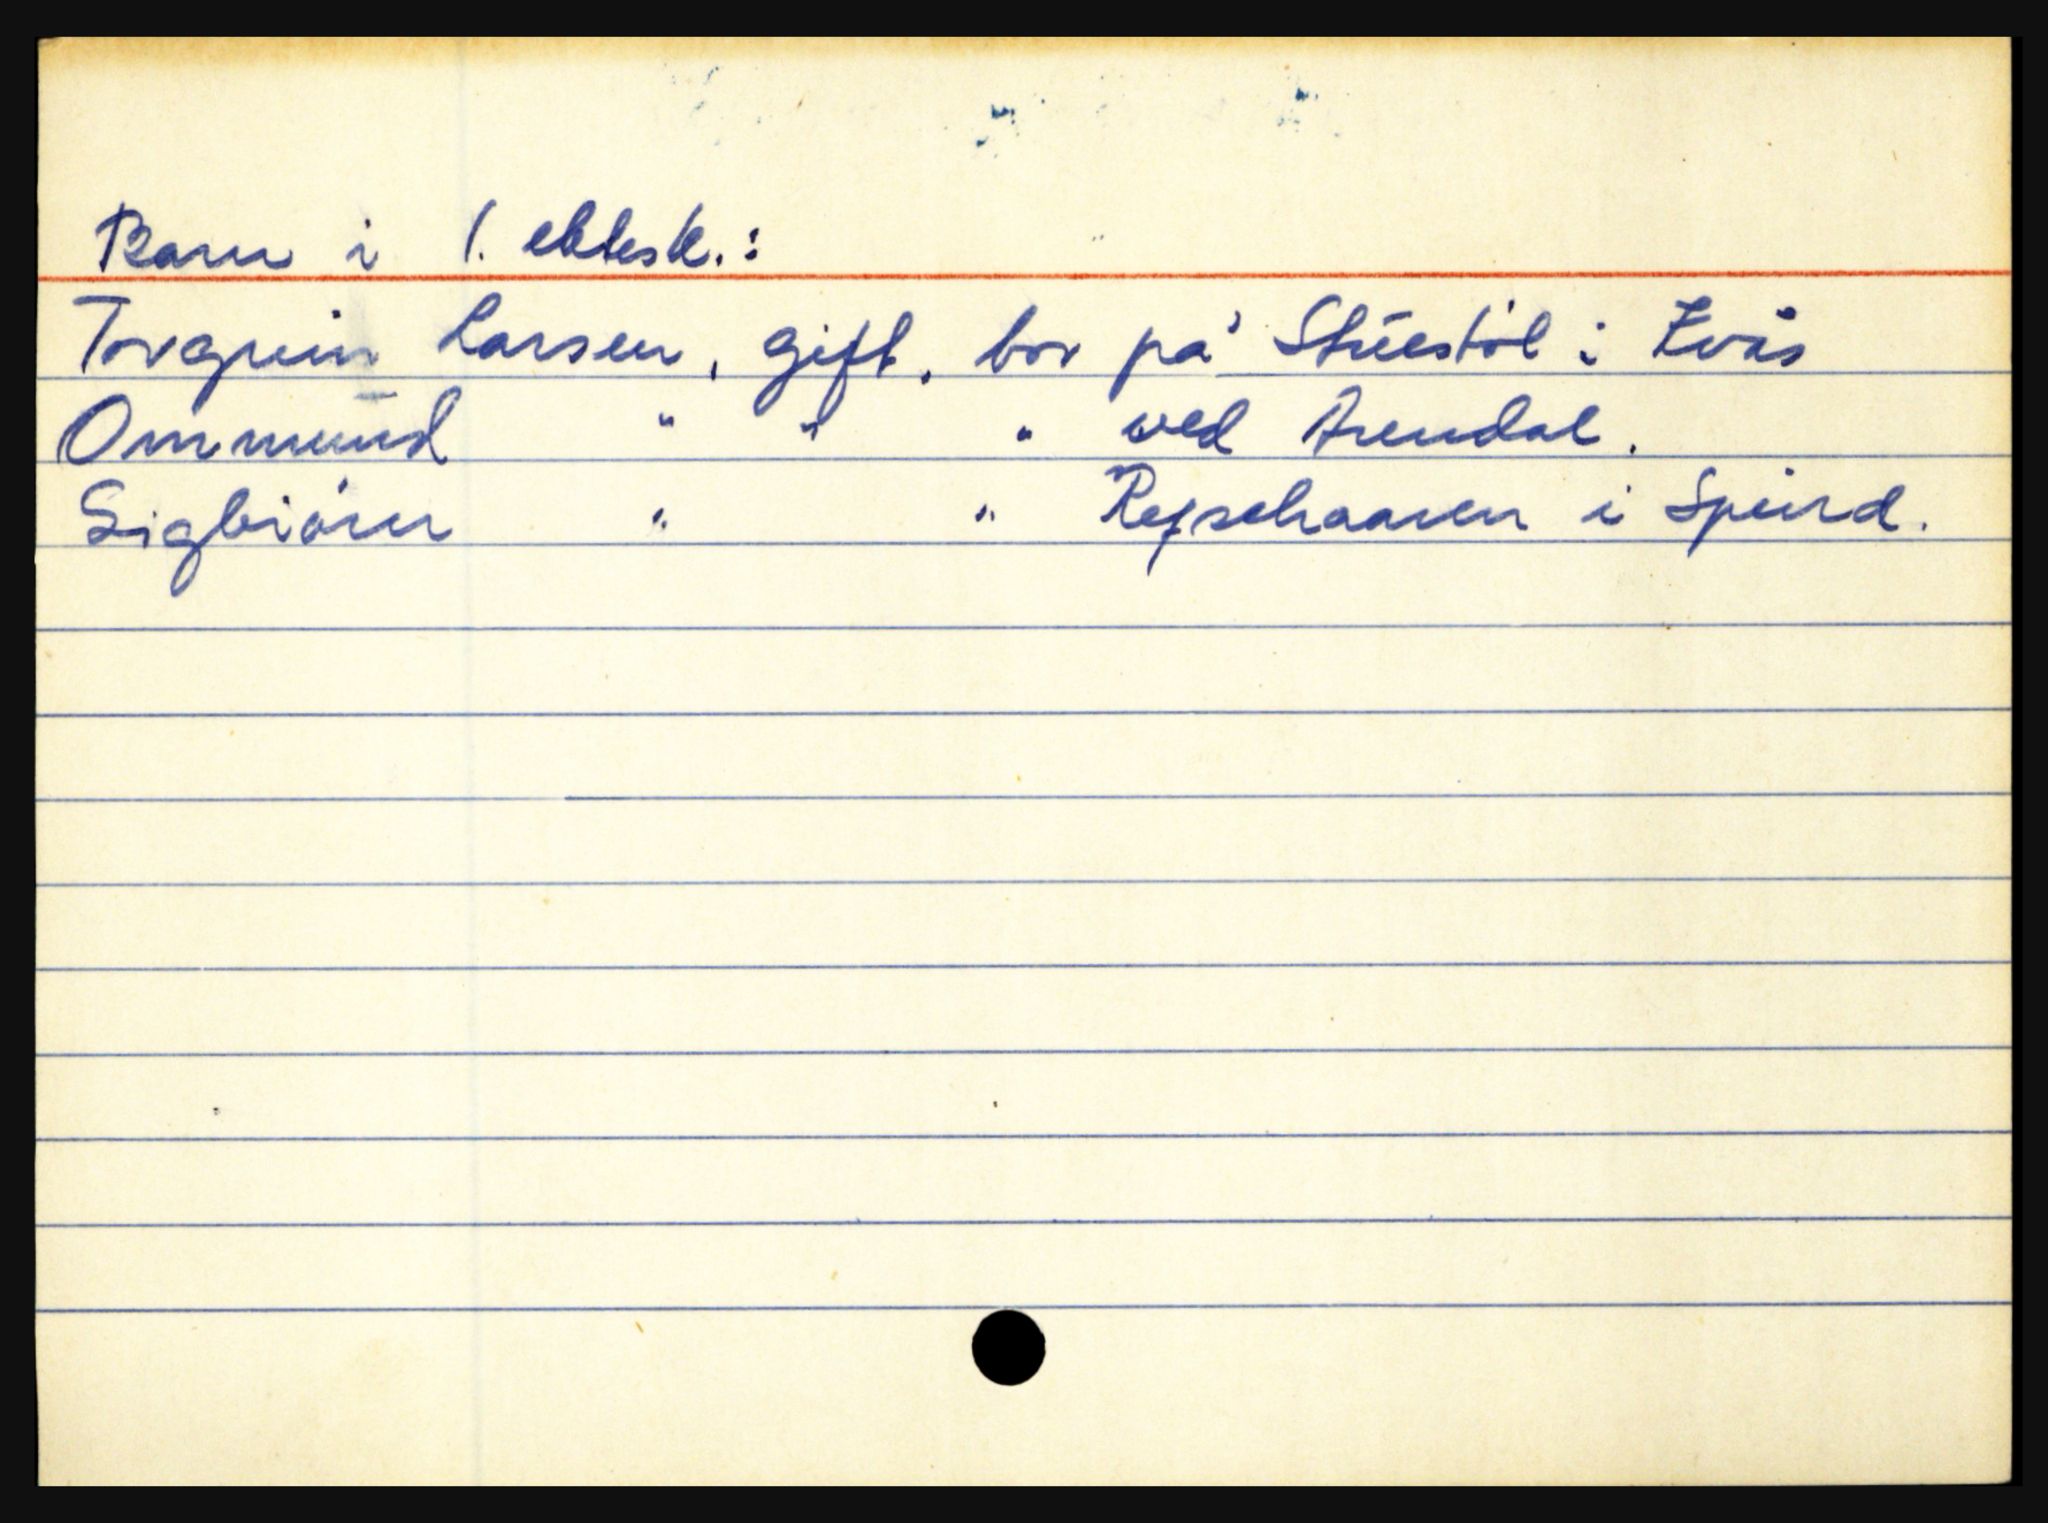 Barn i 1. ektesk.:
Torgrim Larsen, gift, bor på Stúestöl i Kvås
Ommund " " " ved Arendal.
Sigbiörn " " Refsehaaven i Spind.